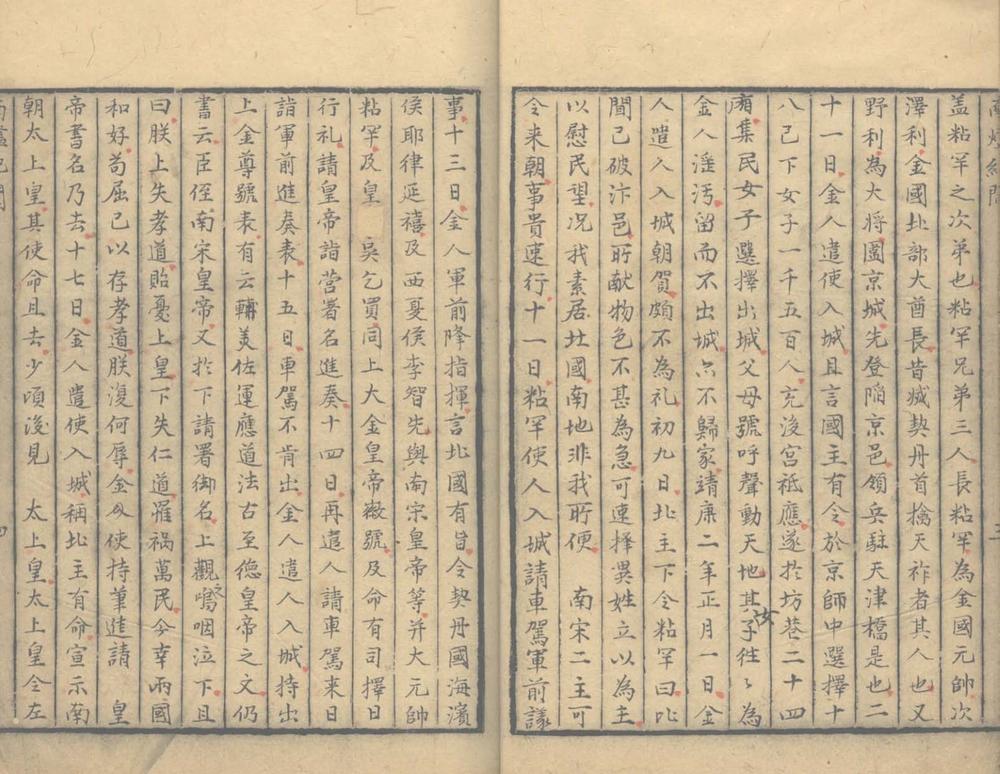 盖粘罕之次弟也粘罕兄弟三人長粘罕為金國元帥次
澤利金國北部大酋長昔烕契丹首擒天祚者其人也又
野利為大將圍京城先登陷京邑領兵駐天津橋是也二
十一日金人遣使入城且言國主有令於京師中選擇十
八已下女子一千五百人充後宮祗應遂於坊巷二十四
廂集民女子選擇出城父母號呼聲動天地其女子往〻為
金人淫污留而不出城亦不歸家靖康二年正月一日金
人遣人入城朝賀頗不為礼初九日北主下令粘罕曰
間已破汴邑所献物色不甚為急可速擇異姓立以為主
以慰民望况我素居北國南地非我所便　南宋二主可
令来朝事貴速行十一日粘罕使人入城請車駕軍前議
事十三日金人軍前降指揮言北國有旨令契丹國海濱
侯耶律延禧及西夏侯李智先與南宋皇帝等并大元帥
粘罕及皇　吳乞買同上大金皇帝徽號及命有司擇日
行礼請皇帝詣營署名進奏十四日再遣人請車駕来日
詣軍前進奏表十五日車駕不肯出金人遣人入城持出
上金尊號表有云輔美佐運應道法古至德皇帝之文仍
書云臣侄南宋皇帝又於下請署御名上觀之嗚咽泣下且
曰朕上失孝道貽憂上皇下失仁道罹禍萬民今幸兩國
和好苟屈己以存孝道朕復何辱金人使持筆進請　皇
帝書名乃去十七日金人遣使入城稱北主有命宣示南
朝太上皇其使命且去少頃後見　太上皇太上皇令左